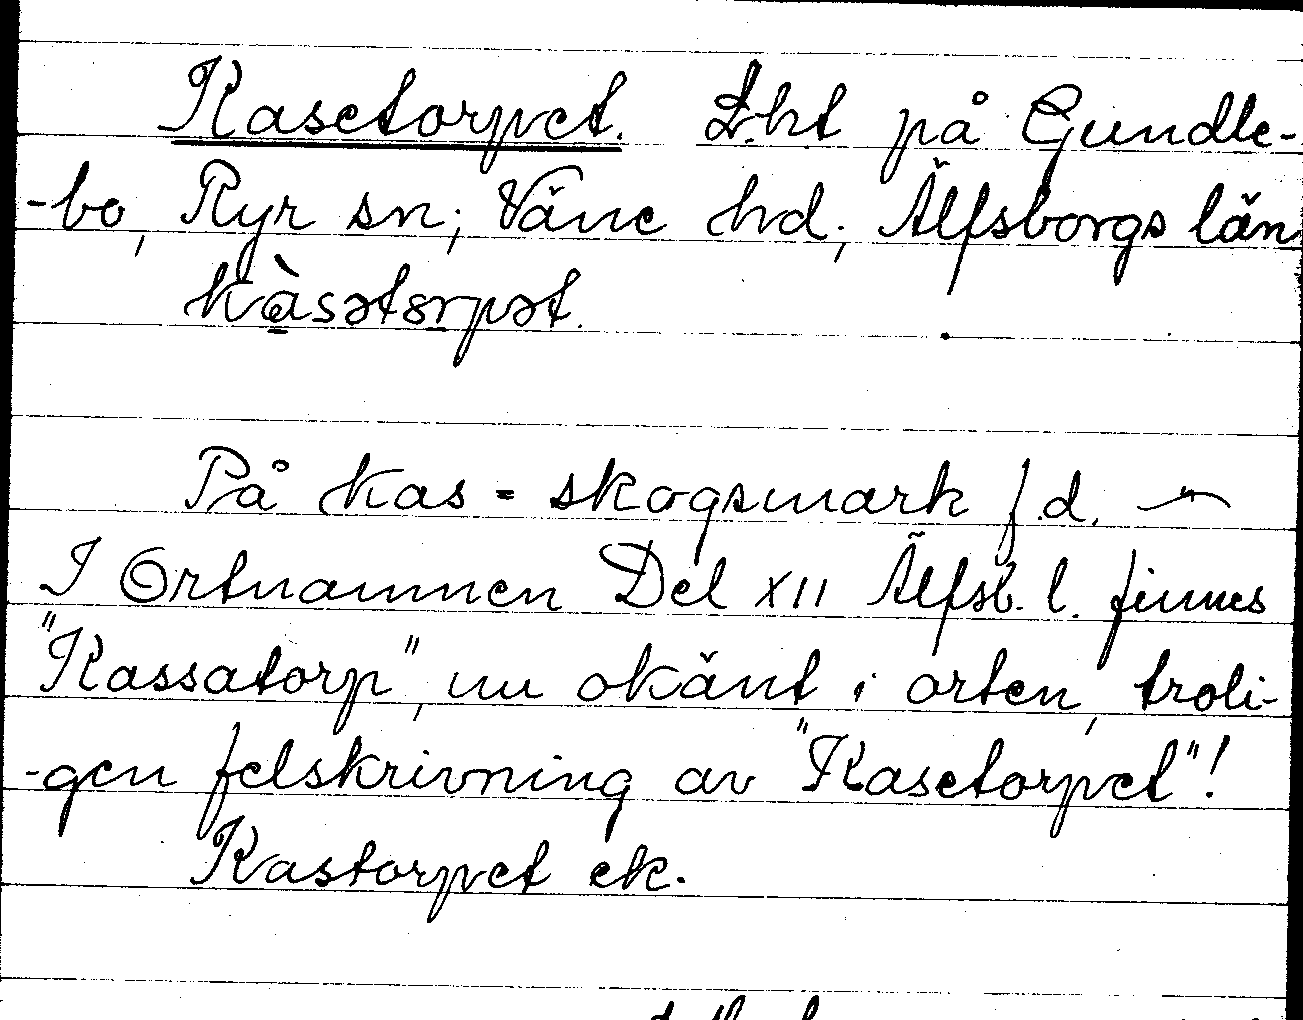 Kasetorpet. L.ht på Gundle-
-bo, Ryr sn; Väne hd; Älfsborgs län
kàsətɔrpət.
På kas = skogsmark f.d. 
I Ortnamnen Del XII Älfsb. l. finnes
"Kassatorp", nu okänt i orten, troli-
-gen felskrivning av "Kasetorpet"!
Kastorpet ek.